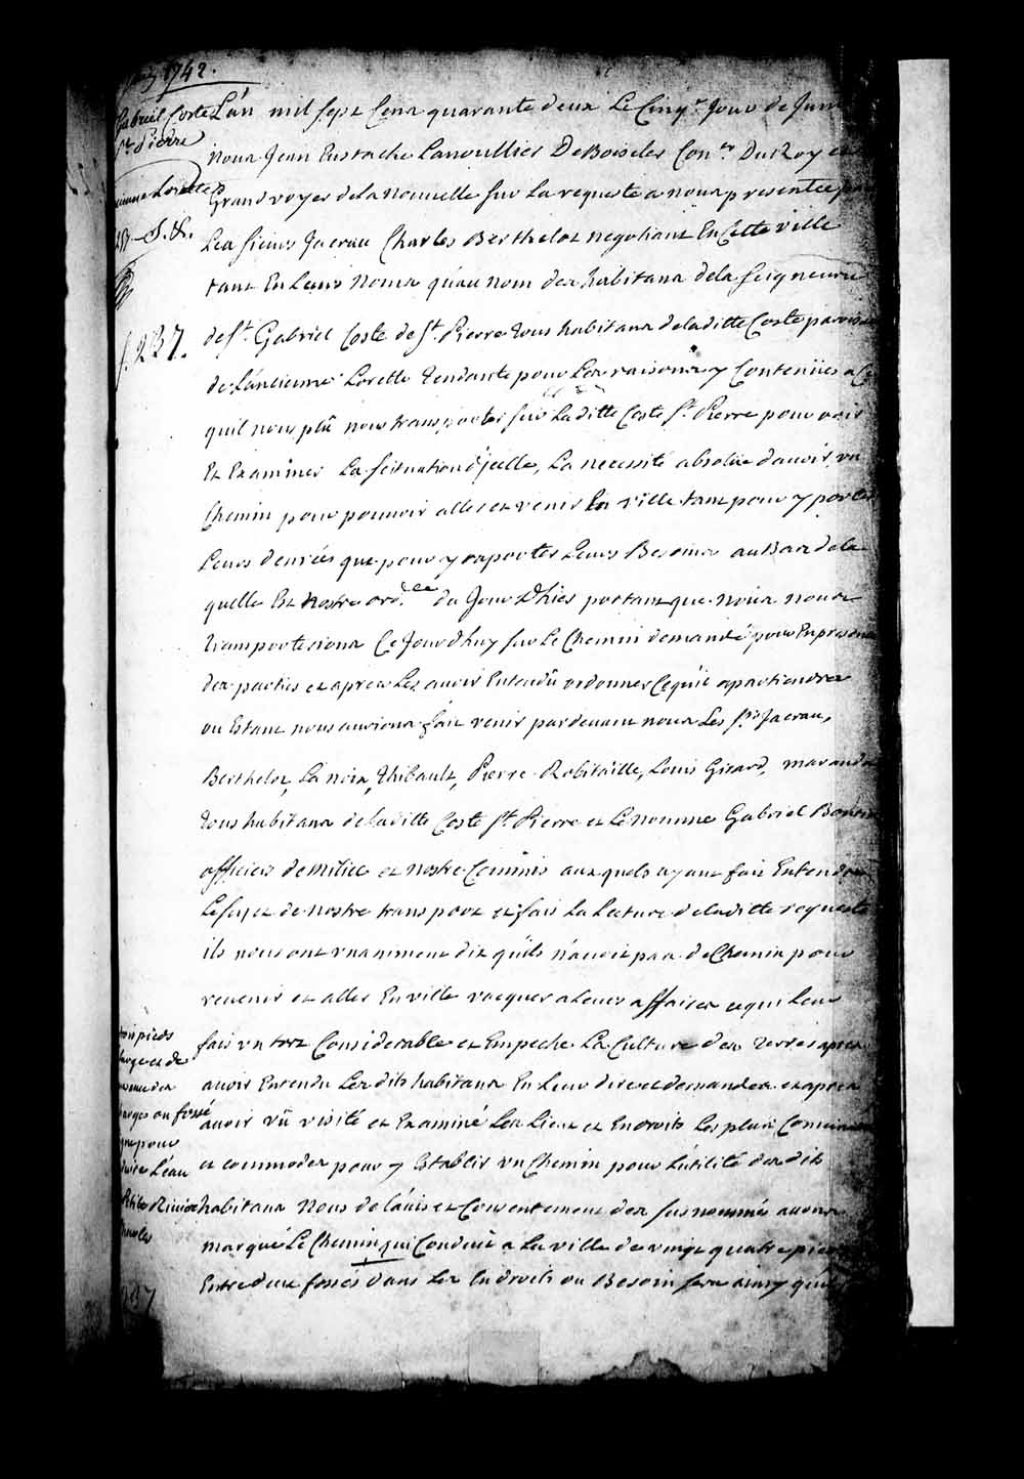 1742.
Gabriel Coste
St. Pierre
Lorette
f. 237.
L'an mil sept Cens quarante deux Le Cinqe. Jour de Juin
Nous Jean Eustache Lanoullier De Boiscler Con.er Du Roy et
Grand voyer de la Nouvelle sur La requeste a nous presentée
Les sieurs Jacrau Charles Berthelot negotiant En Cette ville
tant En Leurs Noms qu'au nom des habitans dela seigneurie
de St. Gabriel Coste de St. Pierre tous habitans deladitte Coste paroisse
de L'ancienne Lorette tendante pour Les raisons y Contenües a Ce
quil nous plû nous transporter sur Laditte Coste St. Pierre pour voir
Et Examiner La scituation d'jcelle, La necessité absolüe d'avoir vn
Chemin pour pouvoir aller et venir En ville tant pour y porter
Leurs denrées que pour y raporter Leurs Besoins au Bas dela
quelle Est Nostre ord.ce du Jour D'hier portant que nous nous
transporterions Ce Jourd'huy sur Le Chemin demandé pour En presence
des parties et apres Les avoir Entendû ordonner Ce qu'il apartiendra
ou Estant nous aurions fait venir pardevant nous Les srs Jacrau,
Berthelot, La noix, Thibault, Pierre Robitaille, Louis Girard,
tous habitans deladitte Coste St. Pierre et Le nommé Gabriel
officier de Milice et nostre Commis aux quels ayant fait Entendre
Le sujet de nostre transport et fait La Lecture deladitte requeste
ils nous ont vnanimement dit qu'ils n'avoit pas de Chemin pour
revenir et aller En ville vacquer a Leurs affaires ce qui Leur
fait vn tort Considerable et Empeche La Culture des terres apres
avoir Entendu Les dits habitans En Leur dire et demandes et apres
avoir vû visité et Examiné Les Lieux et Endroits Les plus
et commodes pour y Establir vn Chemin pour L'utilité desdits
habitans Nous de L'avis et Consentement des susnommés avons
marqué Le Chemin qui Conduit a La ville de vingt quatre pieds
Entre deux fossés dans Les Endroits ou Besoin sera ainsy
pieds
large et de
ou fossé
pour
L'eau
Petite Riviere
Charles